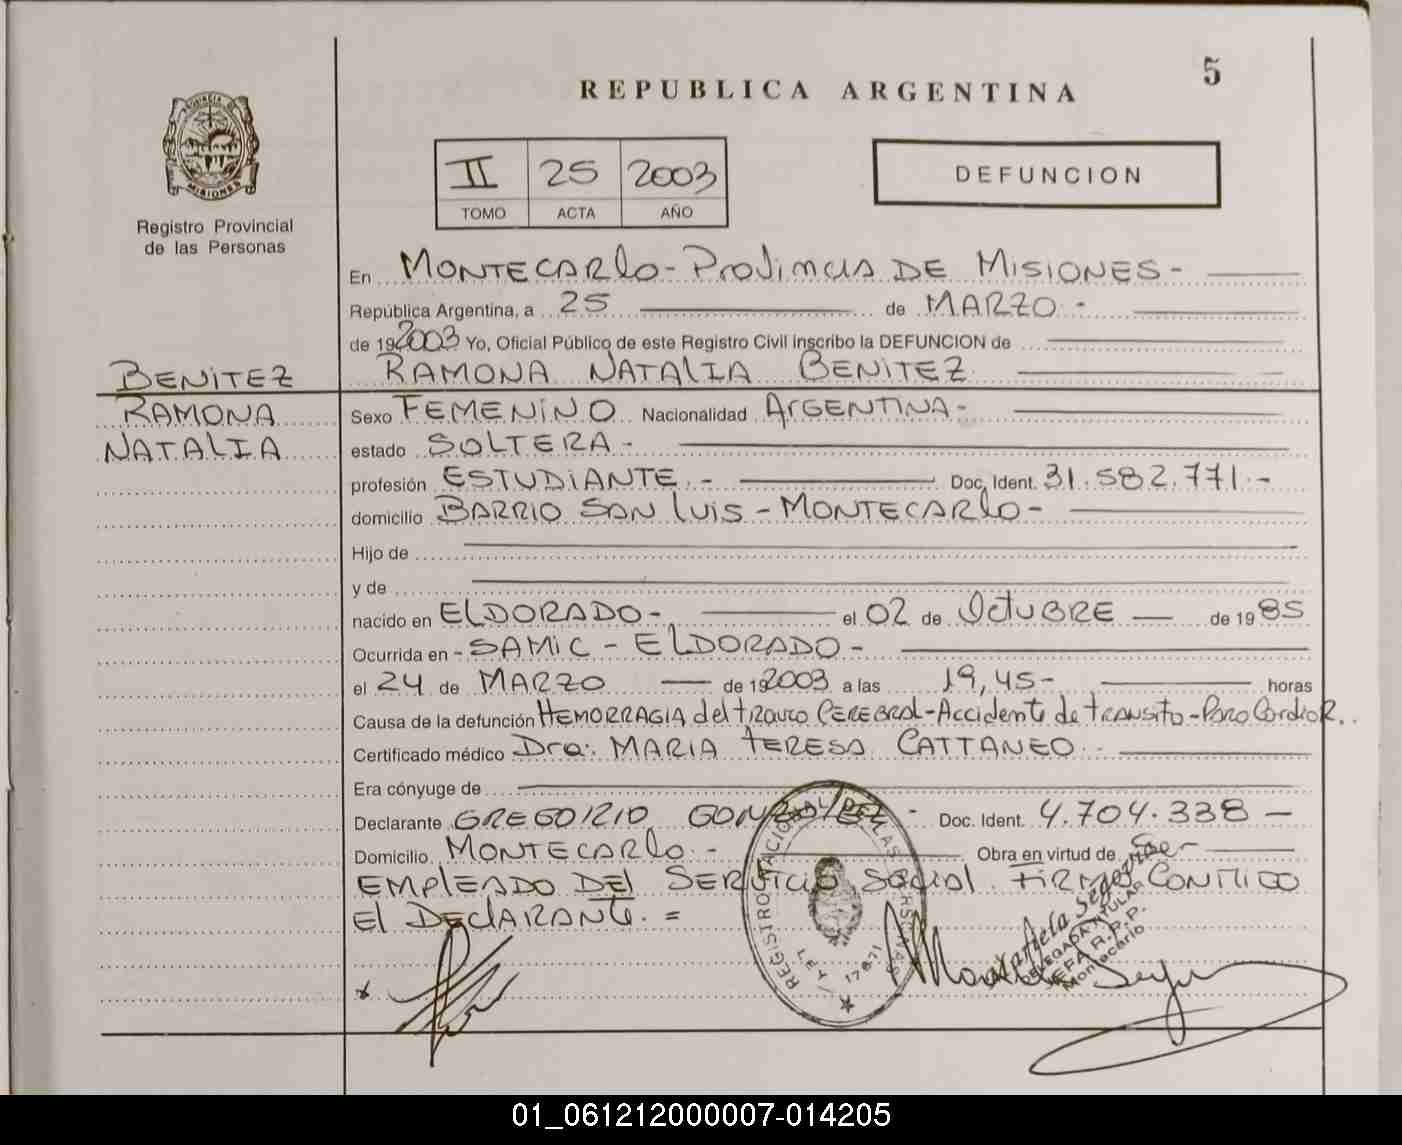 5
REPUBLICA ARGENTINA
PROVINCIA DE
MISIONES
Registro Provincial
de las Personas
II 25 2003
TOMO ACTA AÑO
DEFUNCION
En MONTECARlo - Provincia DE MISIONES -
República Argentina, a 25 de MARZO -
de 192003 Yo, Oficial Público de este Registro Civil inscribo la DEFUNCION de
BENITEZ
RAMONA NATALIA BENITEZ
RAMONA
Sexo FEMENINO Nacionalidad ArGENTINA-
NATALIA
estado SOLTERA -
profesión ESTUDIANTE.- Doc. Ident. 31.582.771.-
domicilio BARRIO SAN luis - MONTECARlo -
Hijo de
y de
nacido en ELDORADO- el 02 de OctUBRE de 1985
Ocurrida en - SAMIC - ELDORADO -
el 24 de MARZO de 192003 a las 19,45- horas
Causa de la defunción HEMORRAGIA del tronco CEREBRal-Accidente de trANSito-Paro CardioR..
Certificado médico Dra: MARIA tERESA CATTANEO.-
Era cónyuge de
Declarante GREGORIO GONZALEZ - Doc. Ident. 4.704.338 -
Domicilio MONTECARlo.- Obra en virtud de Ser-
EMPLEADO DEl SERVICIO SOCIAl. FIRMA CONMIGO
El DEClARANTE. =
REGISTRO NACIONAL DE LAS PERSONAS
LEY 17671
DELEGADA TITULAR
JEFA R.P.P.
Montecarlo
01_061212000007-014205